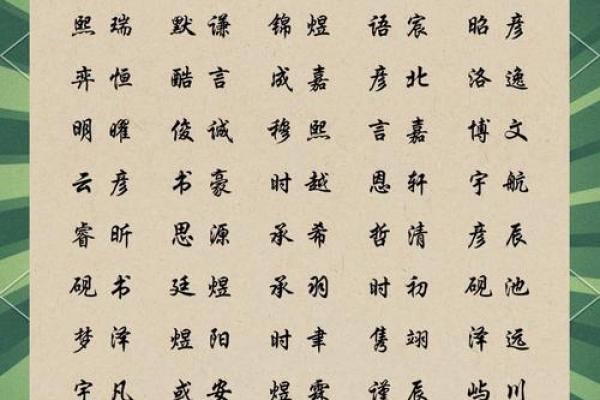 熙瑞 默谦 锦煜 语宸 昭彦
弈恒 酷言 成嘉 彦北 洛逸
明曜 俊诚 穆熙 言嘉 博文
云彦 书豪 时越 恩轩 宇航
睿昕 思源 承希 哲清 彦辰
砚书 廷煜 承羽 时初 砚池
梦泽 煜阳 时聿 隽翊 泽远
宇凡 或安 煜霖 谨辰 屿川